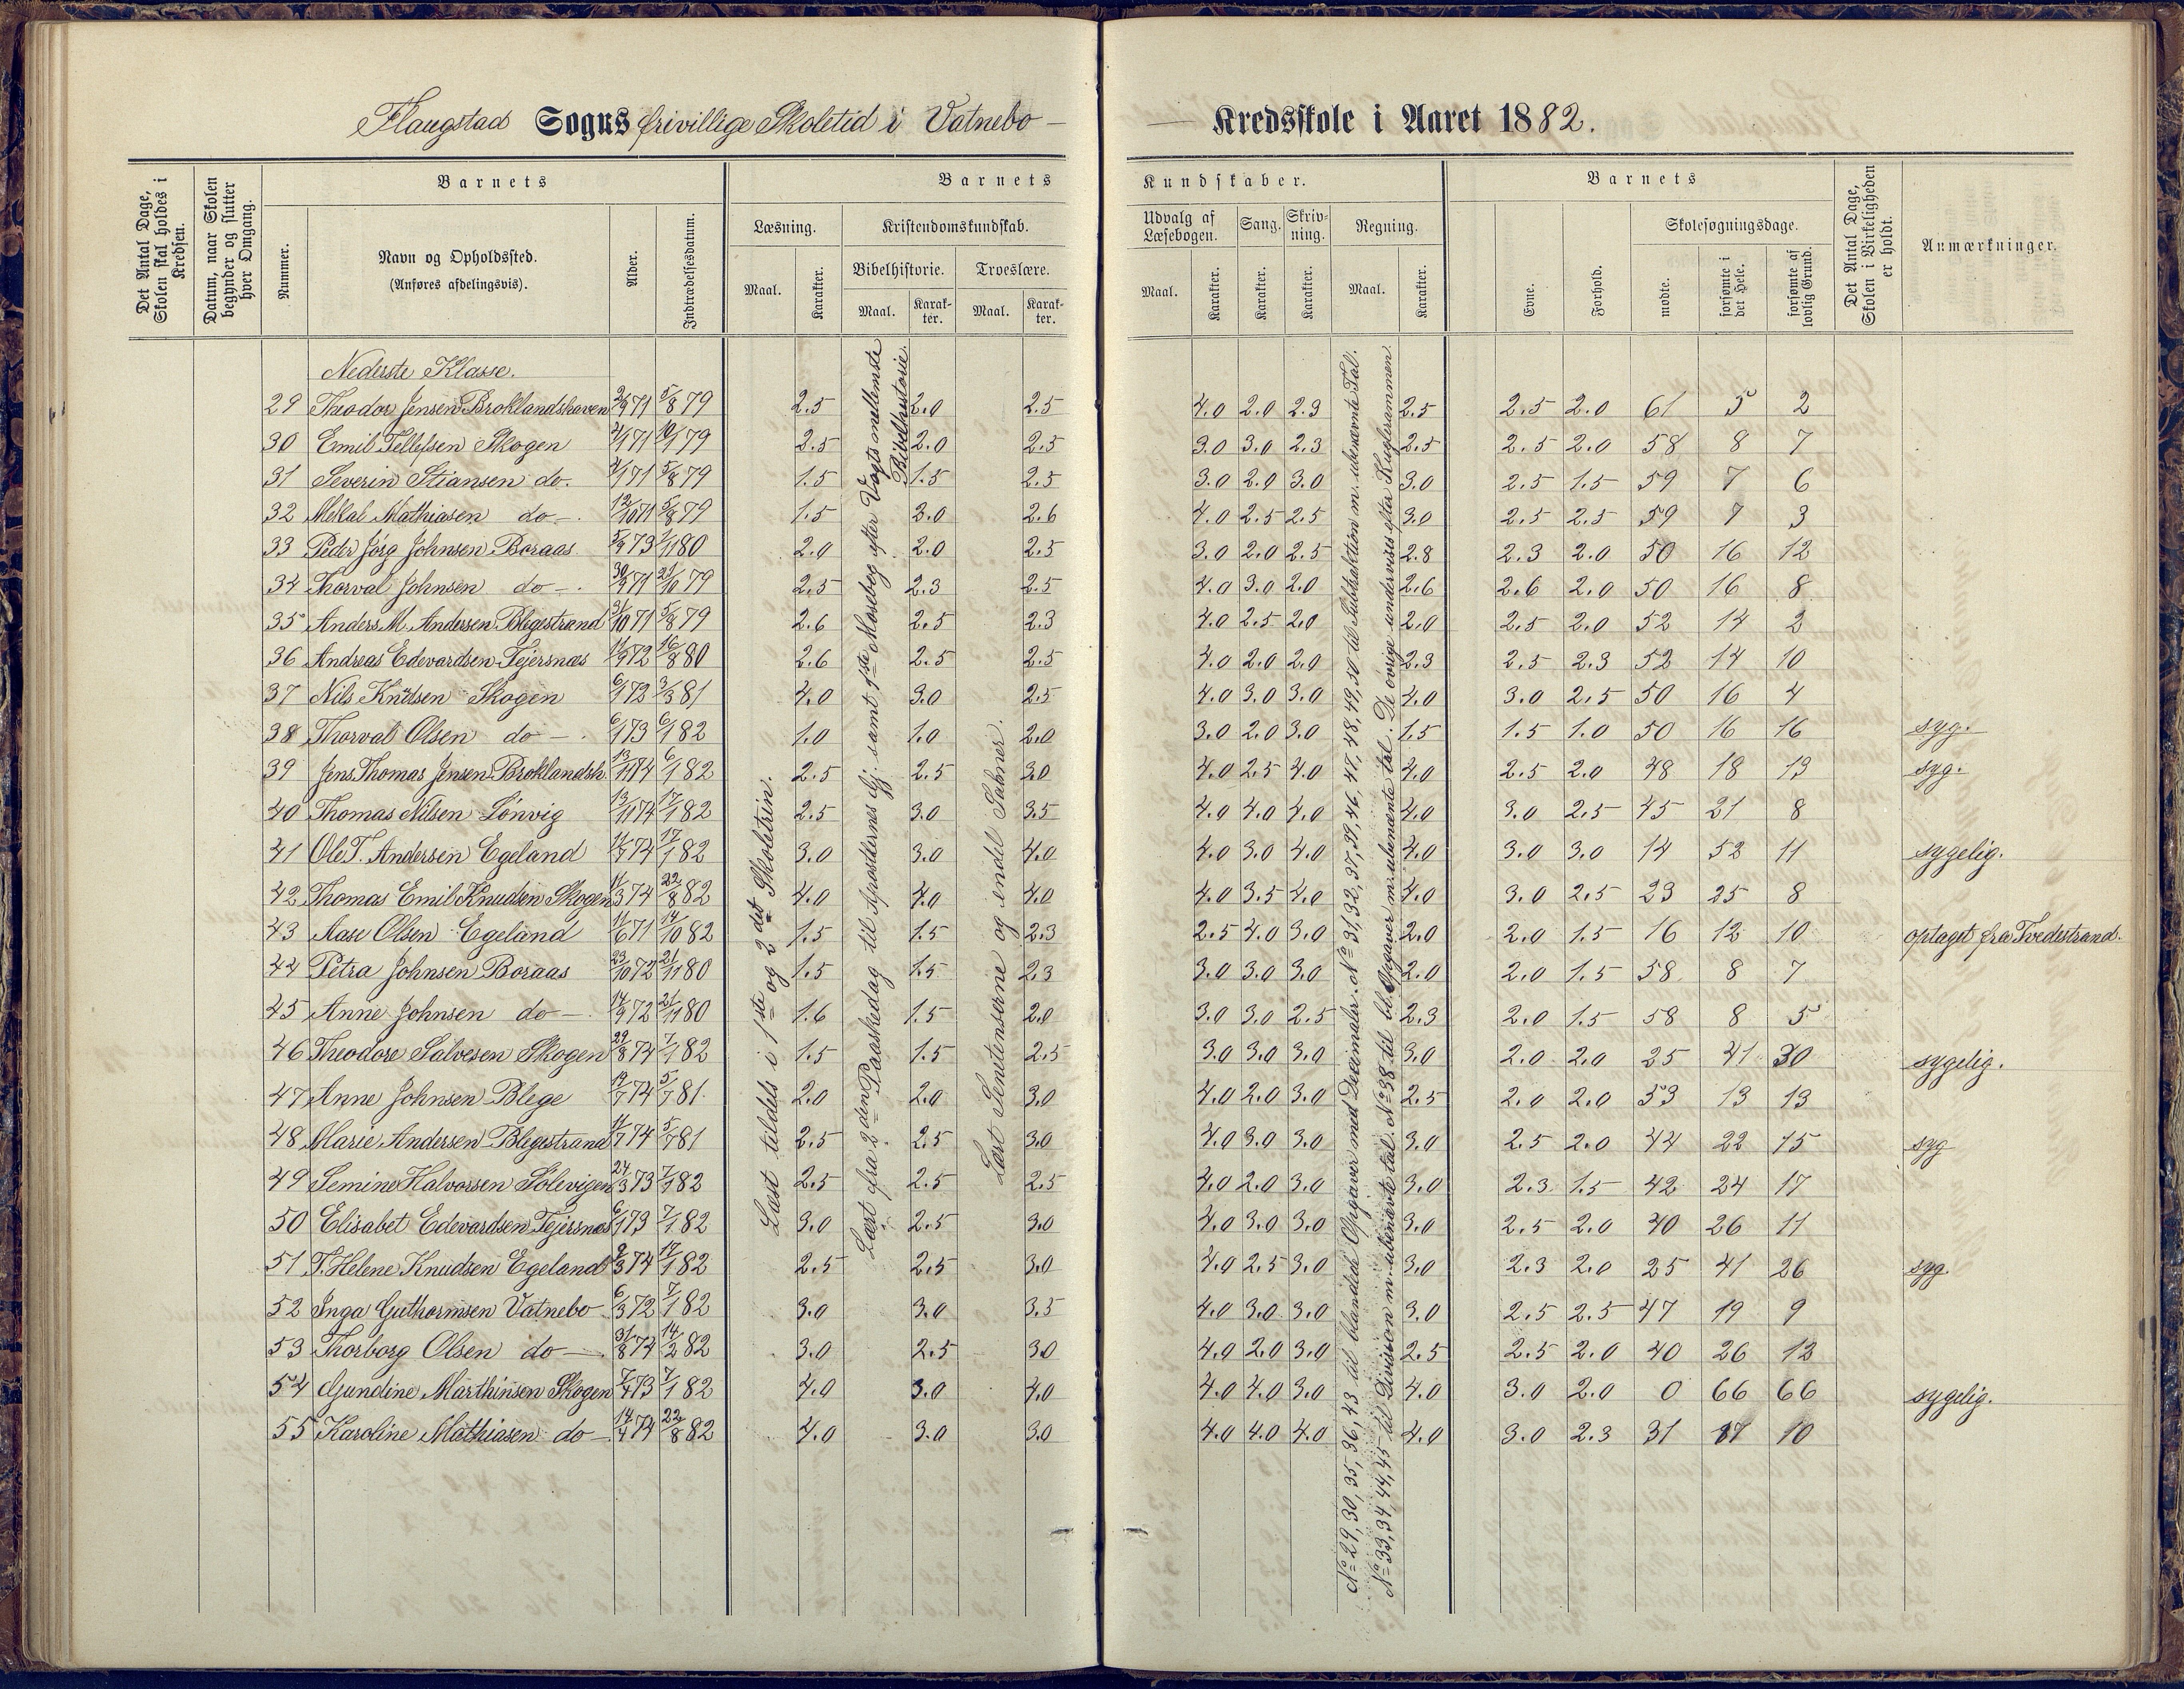 Flaugstad Sogns frivillige Skoletid i Vatnebo — Kredsskole i Aaret 1882.
Det Antal Dage, Skolen skal holdes i Kredsen.
Datum, naar Skolen begynder og slutter hver Omgang.
Barnets
Nummer.
Navn og Opholdssted.
(Anføres afdelingsvis).
Alder.
Indtrædelsesdatum.
Barnets Kundskaber.
Læsning.
Maal. Karakter.
Kristendomskundskab.
Bibelhistorie. Troeslære.
Maal. Karakter. Maal. Karakter.
Udvalg af Læsebogen. Sang. Skrivning. Regning.
Maal. Karakter. Karakter. Karakter. Maal. Karakter.
Barnets
Evne. Forhold.
Skolesøgningsdage.
mødte. forsømte i det Hele. forsømte af lovlig Grund.
Det Antal Dage, Skolen i Virkeligheden er holdt.
Anmærkninger.
Nederste Klasse.
29 Theodor Jensen Broklandshaven 2/9 71 5/8 79 2.5 2.0 2.5 4.0 2.0 2.3 2.5 2.5 2.0 61 5 2
30 Emil Tellefsen Skogen 79 2.5 2.0 2.5 3.0 3.0 2.3 2.5 2.5 2.0 58 8 7
31 Severin Stiansen do. 5/8 79 1.5 1.5 2.5 3.0 2.0 3.0 3.0 2.5 1.5 59 7 6
32 Mekal Mathiasen do —. 12/10 71 5/8 79 1.5 3.0 2.6 4.0 2.5 2.5 3.0 2.5 2.5 59 7 3
33 Peder Jörg Johnsen Boraas 73 80 2.0 2.0 2.5 3.0 2.0 2.5 2.8 2.3 2.0 50 16 12
34 Thorval Johnsen do —. 30/9 71 21/10 79 2.5 2.3 2.5 4.0 3.0 2.0 2.6 2.6 2.0 50 16 8
35 Anders M. Andersen Blegestrand 31/10 71 5/8 79 2.6 2.5 2.3 4.0 2.5 2.0 2.0 2.5 2.0 52 14 2
36 Andreas Edevardsen Fejersnæs 11/9 72 16/8 80 2.6 2.5 2.5 4.0 2.0 2.0 2.3 2.5 2.3 52 14 10
37 Nils Knudsen Skogen 6/1 72 3/3 81 4.0 3.0 2.5 4.0 3.0 3.0 4.0 3.0 2.5 50 16 4
38 Thorval Olsen do —. 6/1 73 6/1 82 1.0 1.0 2.0 3.0 2.0 3.0 1.5 1.5 1.0 50 16 16 syg.
39 Jens Thomas Jensen Broklandsh. 13/11 74 6/1 82 2.5 2.5 3.0 4.0 2.5 4.0 4.0 2.5 2.0 48 18 13 syg.
40 Thomas Nilsen Lönvig 13/11 74 17/1 82 2.5 3.0 3.5 4.0 4.0 4.0 4.0 3.0 2.5 45 21 8
41 Ole T. Andersen Egeland 11/7 74 17/1 82 3.0 3.0 4.0 4.0 3.0 4.0 4.0 3.0 3.0 14 52 11 sygelig.
42 Thomas Emil Knudsen Skogen 11/3 74 22/8 82 4.0 4.0 4.0 4.0 3.5 4.0 4.0 3.0 2.5 23 25 8
43 Aase Olsen Egeland 11/6 71 14/10 82 1.5 1.5 2.3 2.5 4.0 3.0 2.0 2.0 1.5 16 12 10 optaget fra Tvedestrand.
44 Petra Johnsen Boraas 23/10 72 21/11 80 1.5 1.5 2.3 3.0 3.0 3.0 2.0 2.0 1.5 58 8 7
45 Anne Johnsen do —. 14/9 72 21/11 80 1.6 1.5 2.0 3.0 3.0 2.5 2.3 2.0 1.5 58 8 5
46 Theodore Salvesen Skogen 29/8 74 7/1 82 1.5 1.5 2.5 3.0 3.0 3.0 3.0 2.0 2.0 25 41 30 sygelig.
47 Anne Johnsen Blege 74 5/7 81 2.0 2.0 3.0 4.0 2.0 3.0 2.5 2.0 2.0 53 13 13
48 Marie Andersen Blegestrand 11/7 74 5/7 81 2.5 2.5 3.0 4.0 3.0 3.0 3.0 2.5 2.0 44 22 15 syg
49 Semine Halvorsen Sölevigen 24/3 73 7/1 82 2.5 2.5 2.5 4.0 2.0 3.0 3.0 2.3 1.5 42 24 17
50 Elisabet Edevardsen Fejersnæs 6/1 73 7/1 82 3.0 2.5 3.0 4.0 3.0 3.0 3.0 2.5 2.0 40 26 11
51 T. Helene Knudsen Egeland 2/3 74 17/1 82 2.5 2.5 3.0 4.0 2.5 3.0 3.0 2.3 2.0 25 41 26 syg.
52 Inga Guthormsen Vatnebo 6/3 72 7/1 82 3.0 3.0 3.5 4.0 3.0 3.0 3.0 2.5 2.5 47 19 9
53 Thorborg Olsen do —. 31/8 74 14/2 82 3.0 2.5 3.0 4.0 2.0 3.0 2.5 2.5 2.0 40 26 12
54 Gundine Marthinsen Skogen 73 7/1 82 4.0 3.0 4.0 4.0 4.0 3.0 4.0 3.0 2.0 0 66 66 sygelig.
55 Karoline Mathiasen do —. 14/4 74 22/8 82 4.0 3.0 3.0 4.0 4.0 4.0 4.0 3.0 2.3 31 17 10
Læst tildels i 1ste og 2det Skoletrin.
Lært fra 2den Paaskedag til Apostlernes Gj. samt 1ste Mosebog efter Vogts mellemste Bibelhistorie.
Lært Sentenserne og endel Salmer.
No 29, 30, 35, 36, 43 til blandede Opgaver med Decimaler. No 31, 32, 37, 39, 46, 47, 48, 49, 50 til Subtraktion m. ubenævnte Tal.
No 33, 34, 44, 45 til Division m. ubenævte tal. No 38 til bl. Opgaver m. ubenævnte tal. De övrige undervises efter Kuglerammen.